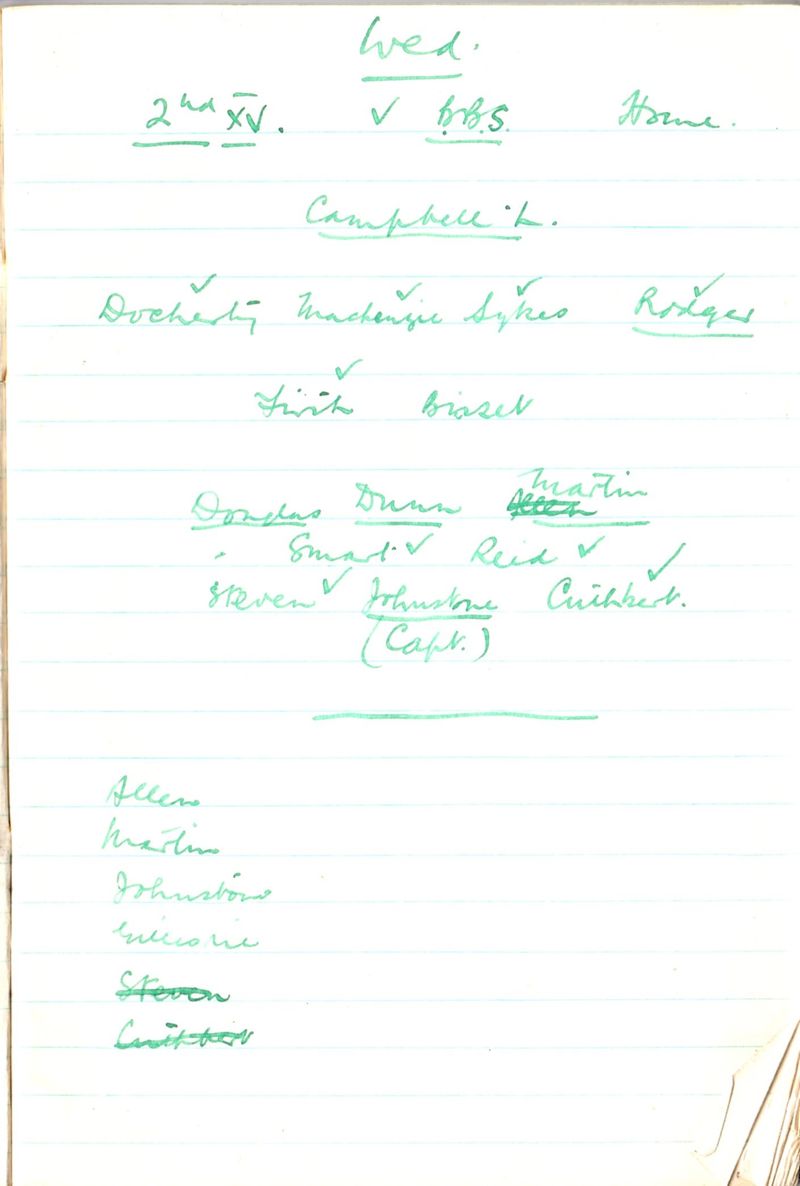 Wed.
2nd XV. ✓ B.B.S. Home.
Campbell L.
Docherty Mackenzie Sykes Rodger
Firth Bisset
Martin
Douglas Dunn Allen
Smart Reid
Steven Johnstone Cuthbert.
(Capt.)
Allen
Martin
Johnstone
Gillespie
Steven
Cuthbert